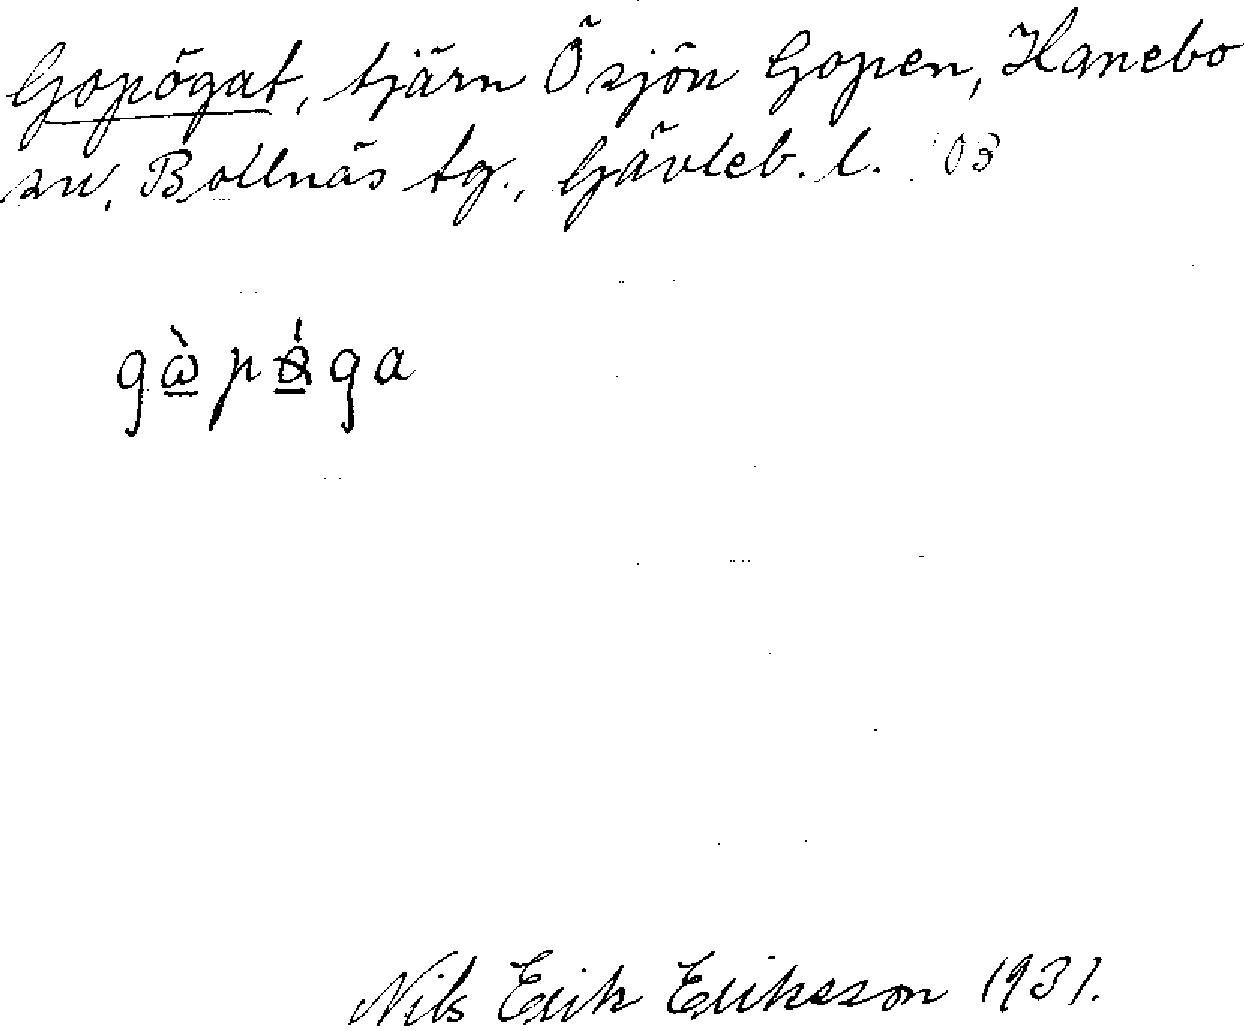 Gopögat, tjärn Ö sjön Gopen, Hanebo
sn, Bollnäs tg., Gävleb. l. 03
Nils Erik Eriksson 1931.